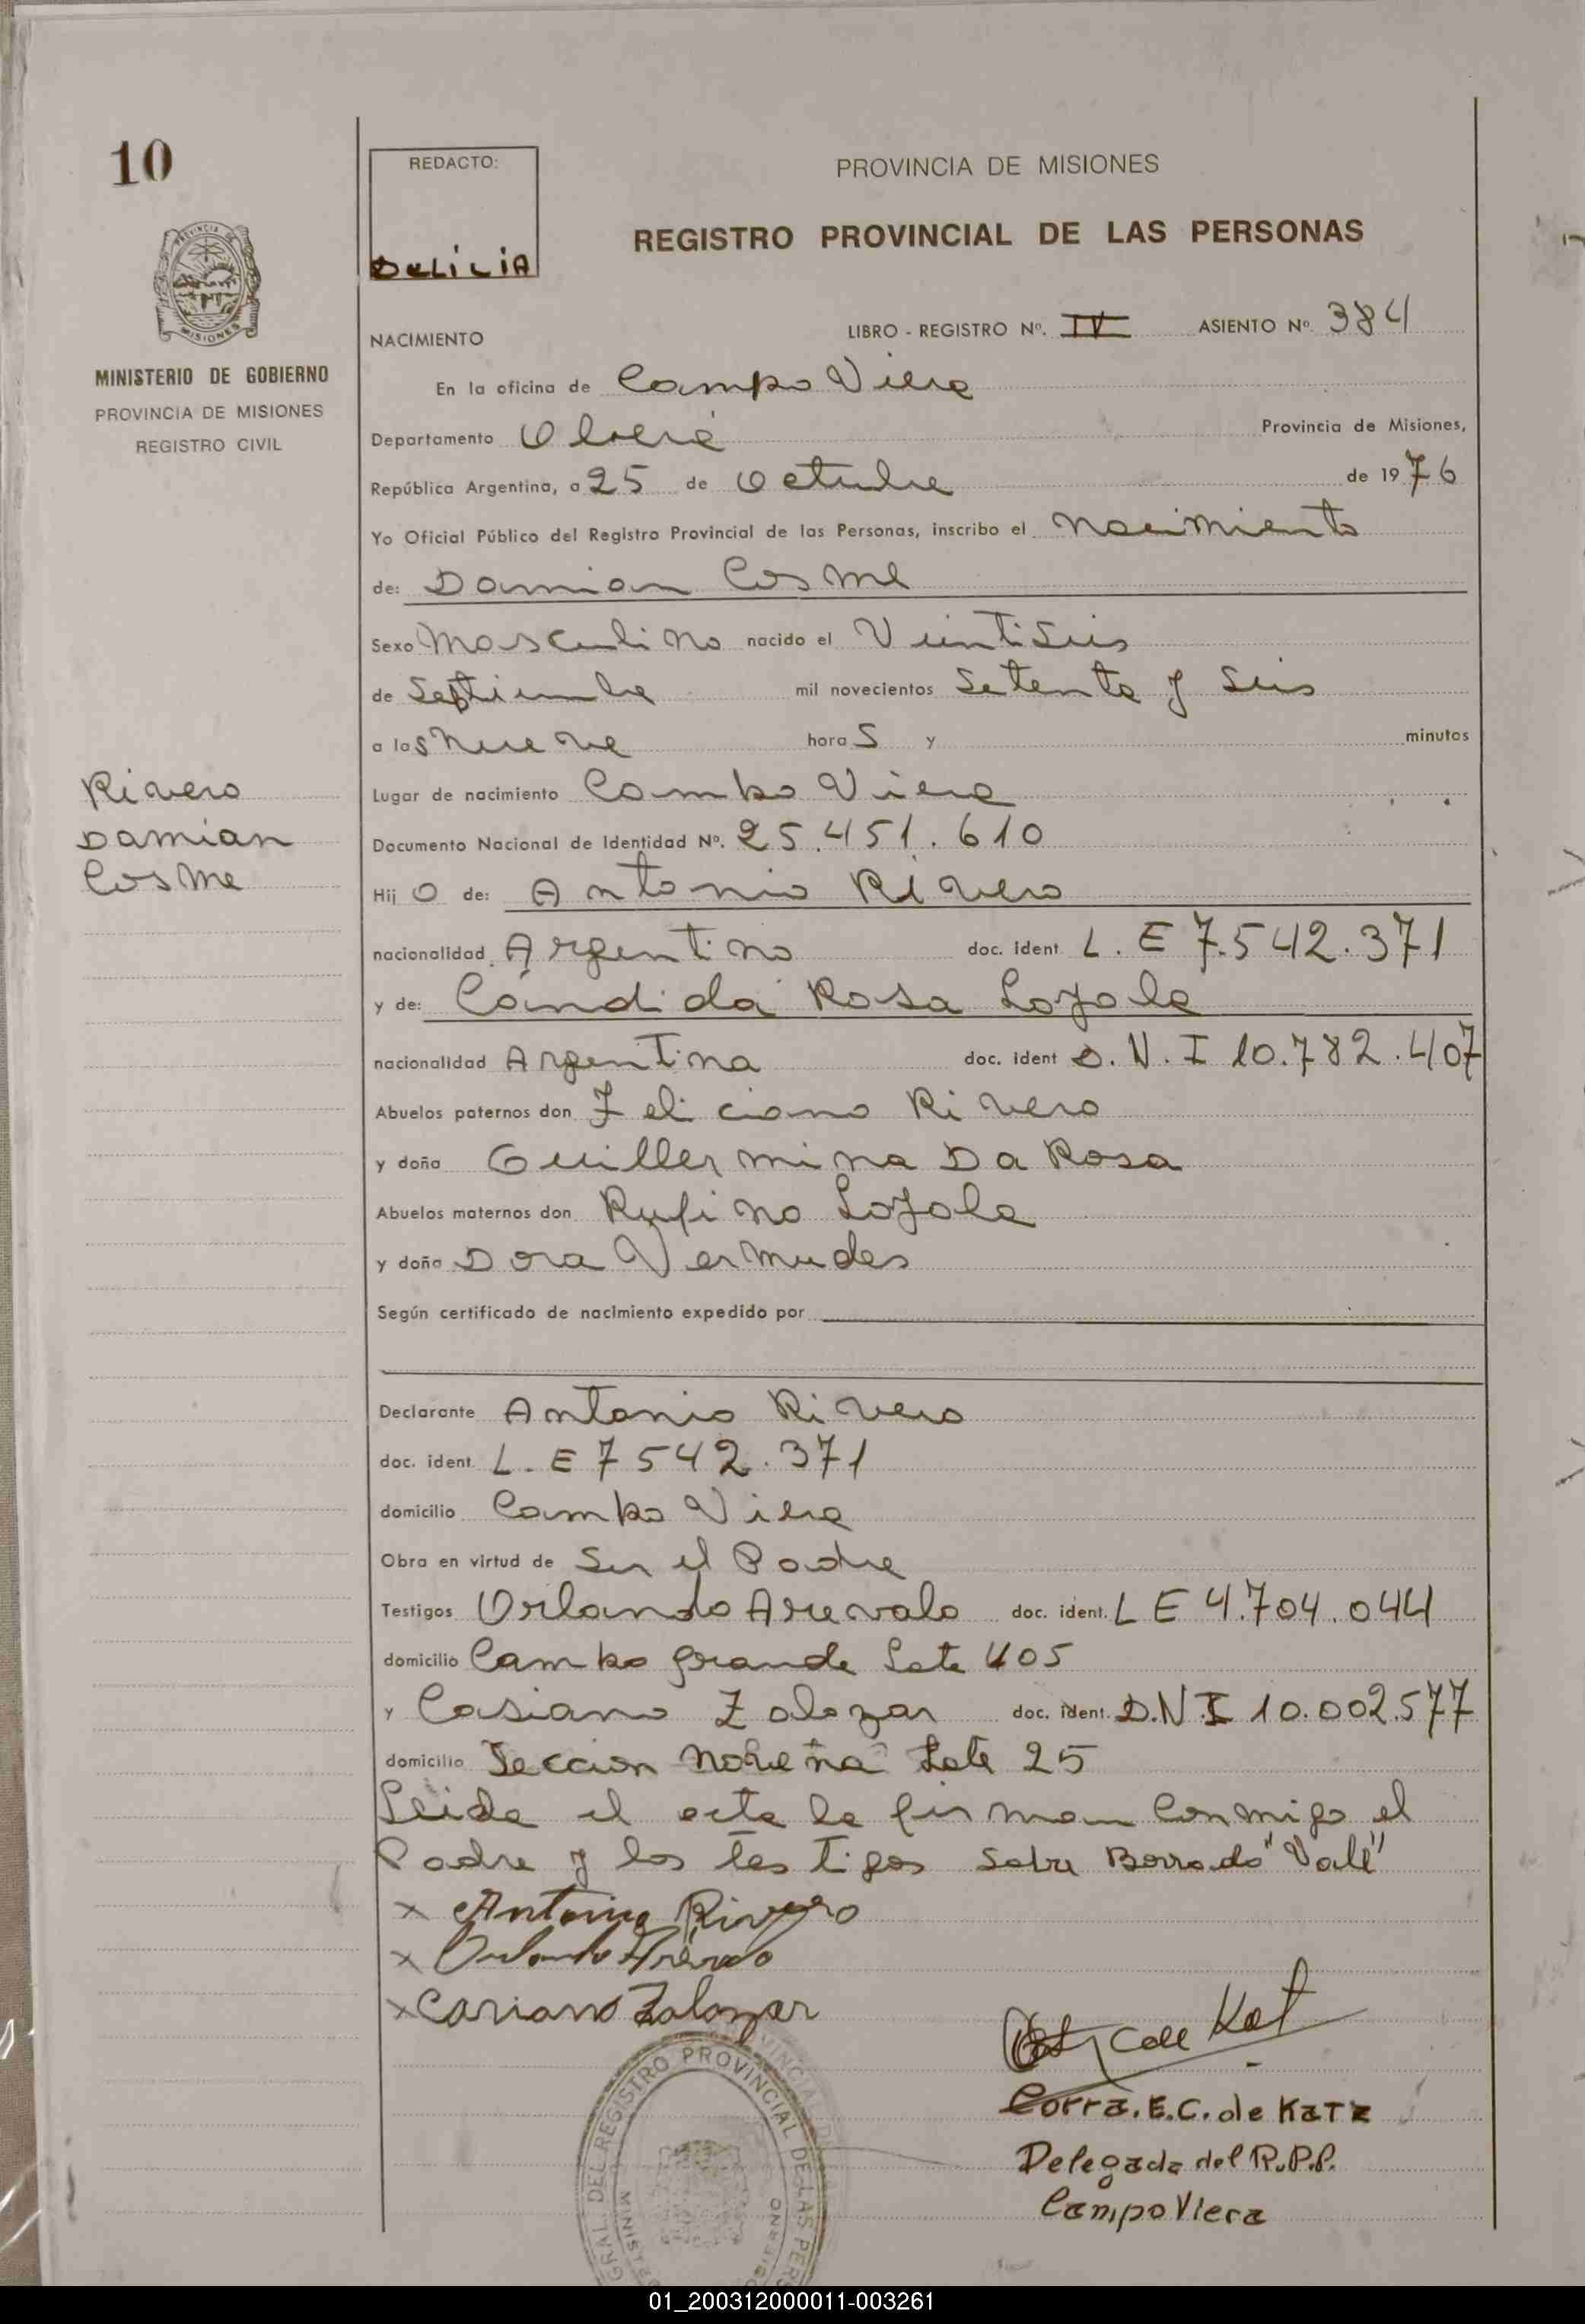 10
REDACTO:
DELICIA
PROVINCIA DE MISIONES
REGISTRO PROVINCIAL DE LAS PERSONAS
PROVINCIA DE
MISIONES
MINISTERIO DE GOBIERNO
PROVINCIA DE MISIONES
REGISTRO CIVIL
NACIMIENTO
LIBRO - REGISTRO Nº. IV ASIENTO Nº 384
En la oficina de Campo Viera
Departamento Oberá Provincia de Misiones,
República Argentina, a 25 de Octubre de 1976
Yo Oficial Público del Registro Provincial de las Personas, inscribo el Nacimiento
de: Damian Cosme
Sexo Masculino nacido el Veintiseis
de Septiembre mil novecientos Setenta y Seis
a las nueve horas y minutos
Rivero
Damian
Cosme
Lugar de nacimiento Campo Viera
Documento Nacional de Identidad Nº. 25.451.610
Hijo de: Antonio Rivero
nacionalidad Argentino doc. ident L. E 7.542.371
y de: Cándida Rosa Loyola
nacionalidad Argentina doc. ident D. N. I 10.782.407
Abuelos paternos don Feliciano Rivero
y doña Guillermina Da Rosa
Abuelos maternos don Rufino Loyola
y doña Dora Vermudes
Según certificado de nacimiento expedido por
Declarante Antonio Rivero
doc. ident. L. E 7 542.371
domicilio Campo Viera
Obra en virtud de Ser el Padre
Testigos Orlando Arevalo doc. ident. L E 4.704.044
domicilio Campo grande Lote 405
y Casiano Zalazar doc. ident. D.N.I 10.002.577
domicilio Seccion Lote 25
Leida el acta la firman Conmigo el
Padre y los testigos Sobre Borrado "Vale"
x Antonio Rivero
x Orlando Arévalo
x Casiano Zalazar
de Kat
Corra. E.C. de Katz
Delegada del R.P.P.
Campo Viera
GRAL. DEL REGISTRO PROVINCIAL DE LAS PERS
01_200312000011-003261